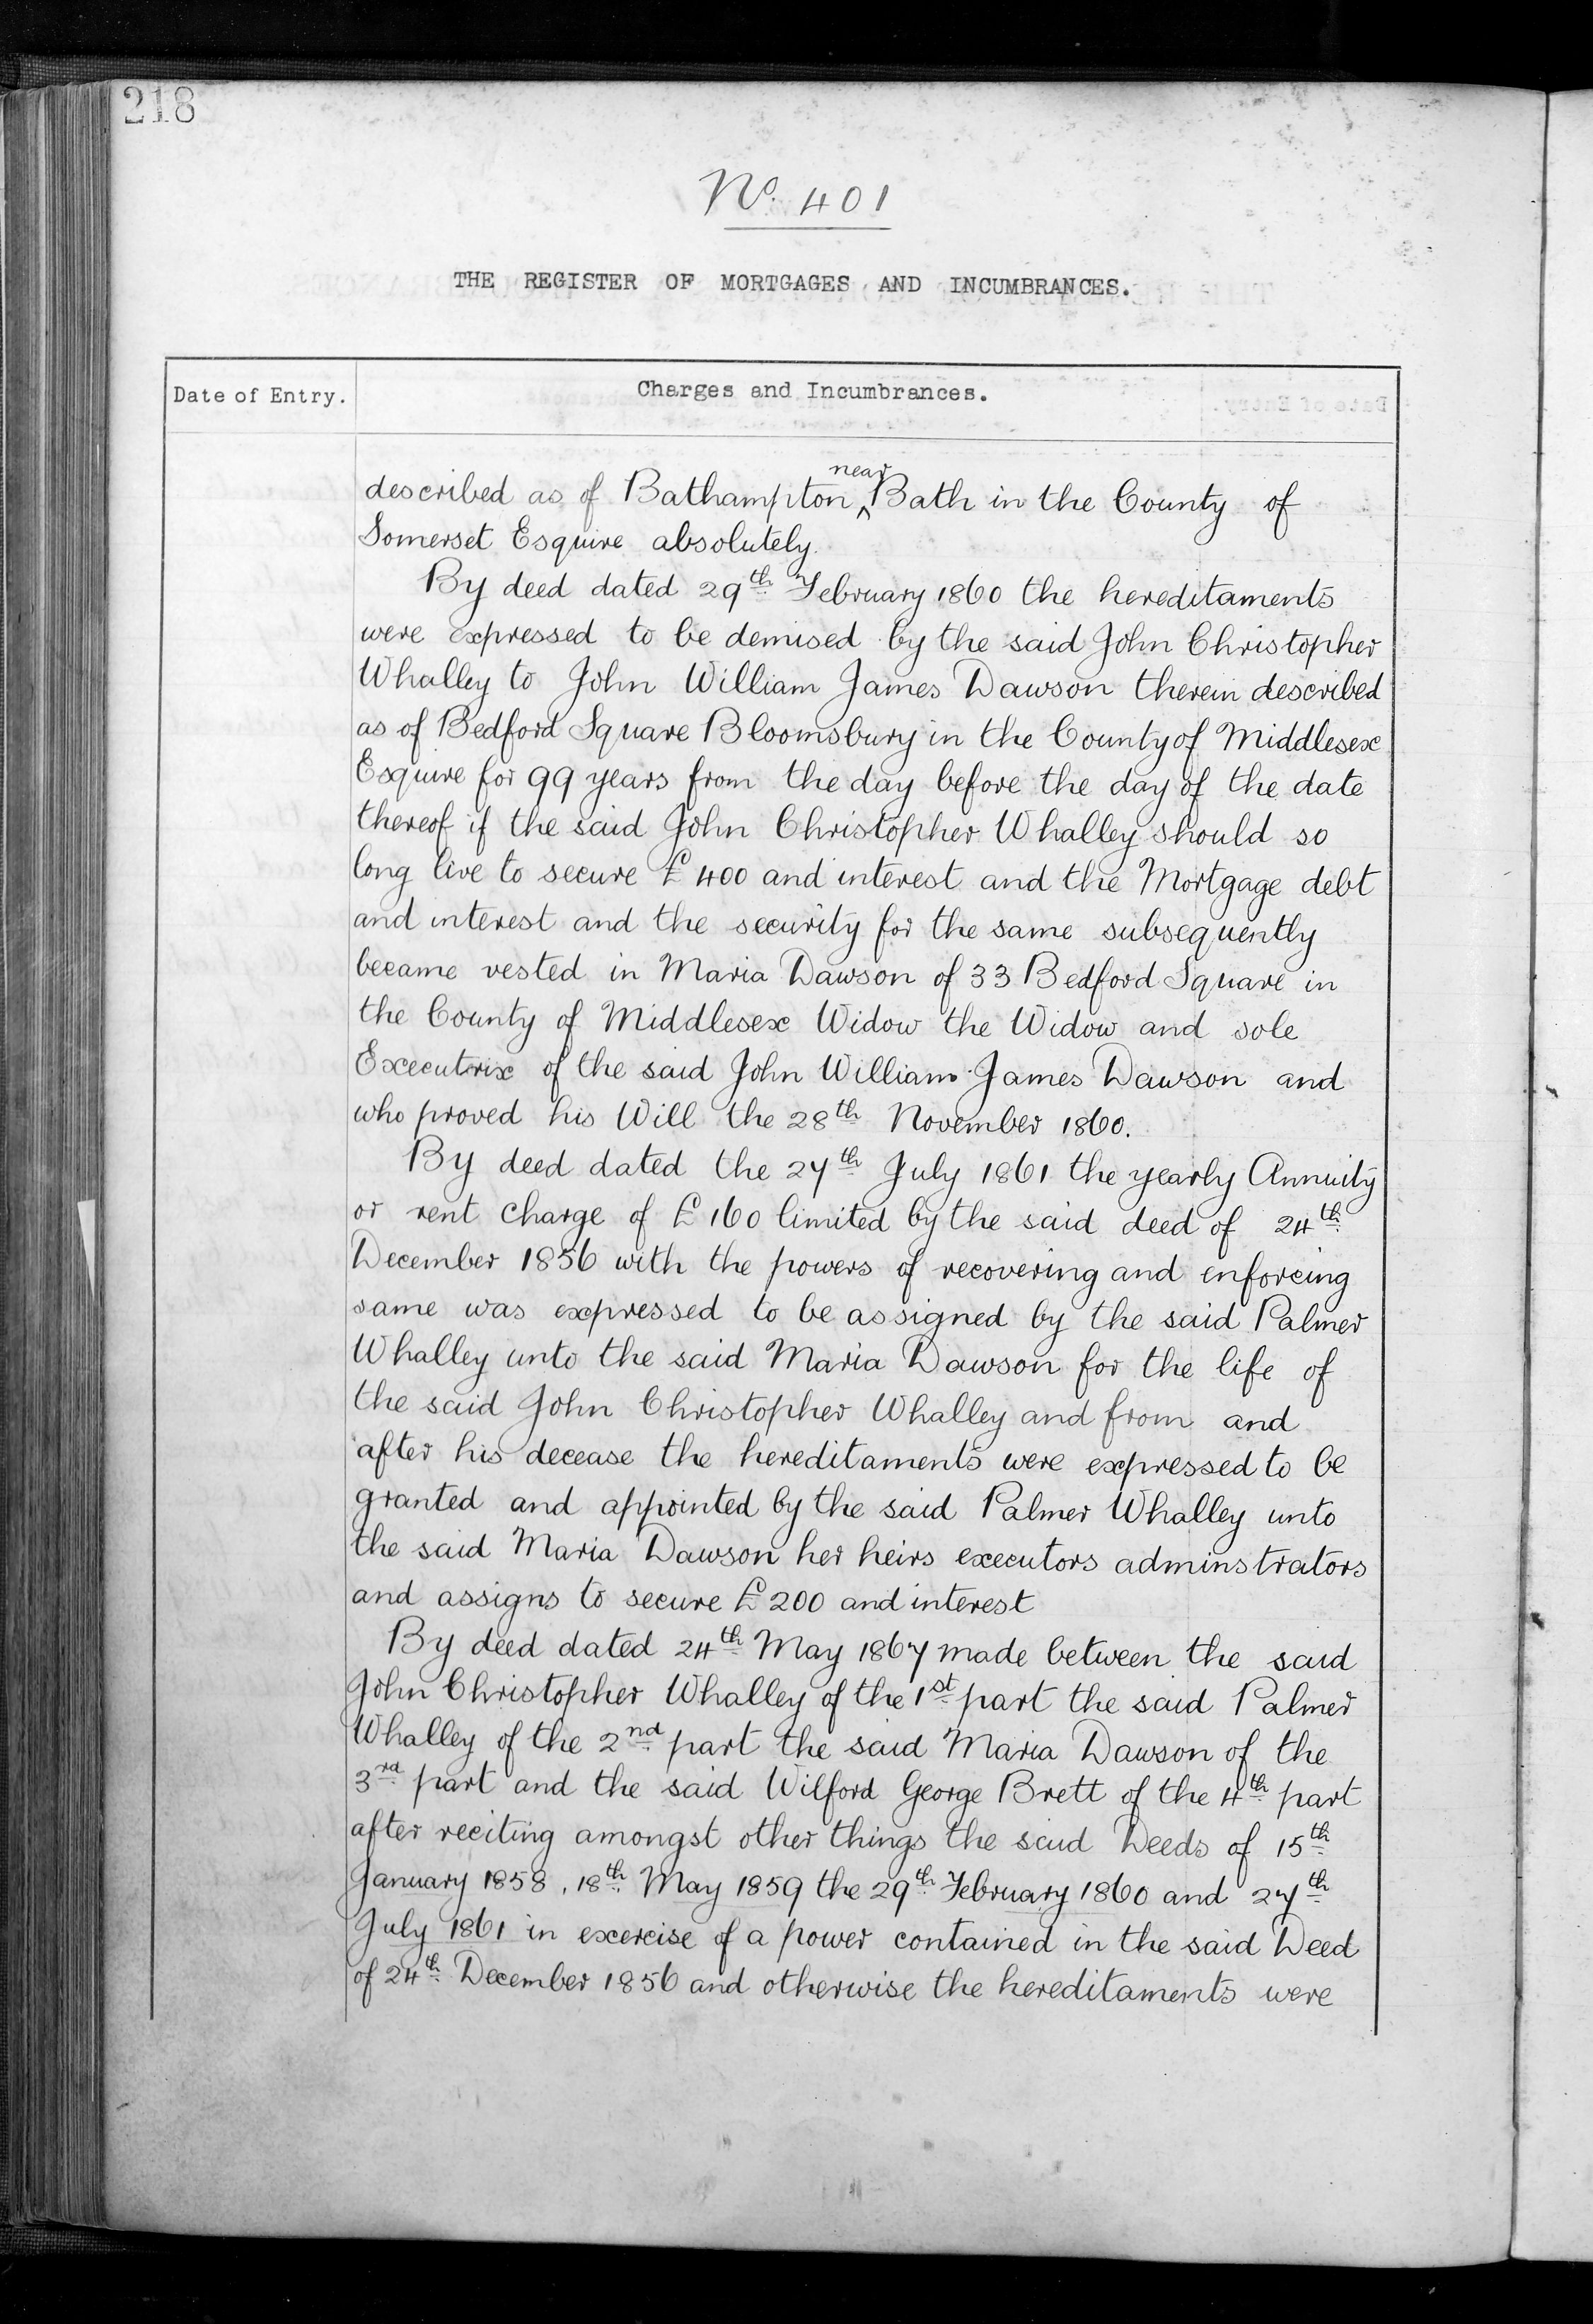 218
No. 401
THE REGISTER OF MORTGAGES AND INCUMBRANCES.
Date of Entry.
Charges and Incumbrances.
described as of Bathampton near Bath in the County of
Somerset Esquire absolutely.
By deed dated 29th February 1860 the hereditaments
were expressed to be demised by the said John Christopher
Whalley to John William James Dawson therein described
as of Bedford Square Bloomsbury in the County of Middlesex
Esquire for 99 years from the day before the day of the date
thereof if the said John Christopher Whalley should so
long live to secure £400 and interest and the Mortgage debt
and interest and the security for the same subsequently
became vested in Maria Dawson of 33 Bedford Square in
the County of Middlesex Widow the Widow and sole
Executrix of the said John William James Dawson and
who proved his Will the 28th November 1860.
By deed dated the 27th July 1861 the yearly Annuity
or rent charge of £160 limited by the said deed of 24th
December 1856 with the powers of recovering and enforcing
same was expressed to be assigned by the said Palmer
Whalley unto the said Maria Dawson for the life of
the said John Christopher Whalley and from and
after his decease the hereditaments were expressed to be
granted and appointed by the said Palmer Whalley unto
the said Maria Dawson her heirs executors adminstrators
and assigns to secure £200 and interest
By deed dated 24th May 1867 made between the said
John Christopher Whalley of the 1st part the said Palmer
Whalley of the 2nd part the said Maria Dawson of the
3rd part and the said Wilford George Brett of the 4th part
after reciting amongst other things the said Deeds of 15th
January 1858, 18th May 1859 the 29th February 1860 and 27th
July 1861 in exercise of a power contained in the said Deed
of 24th December 1856 and otherwise the hereditaments were